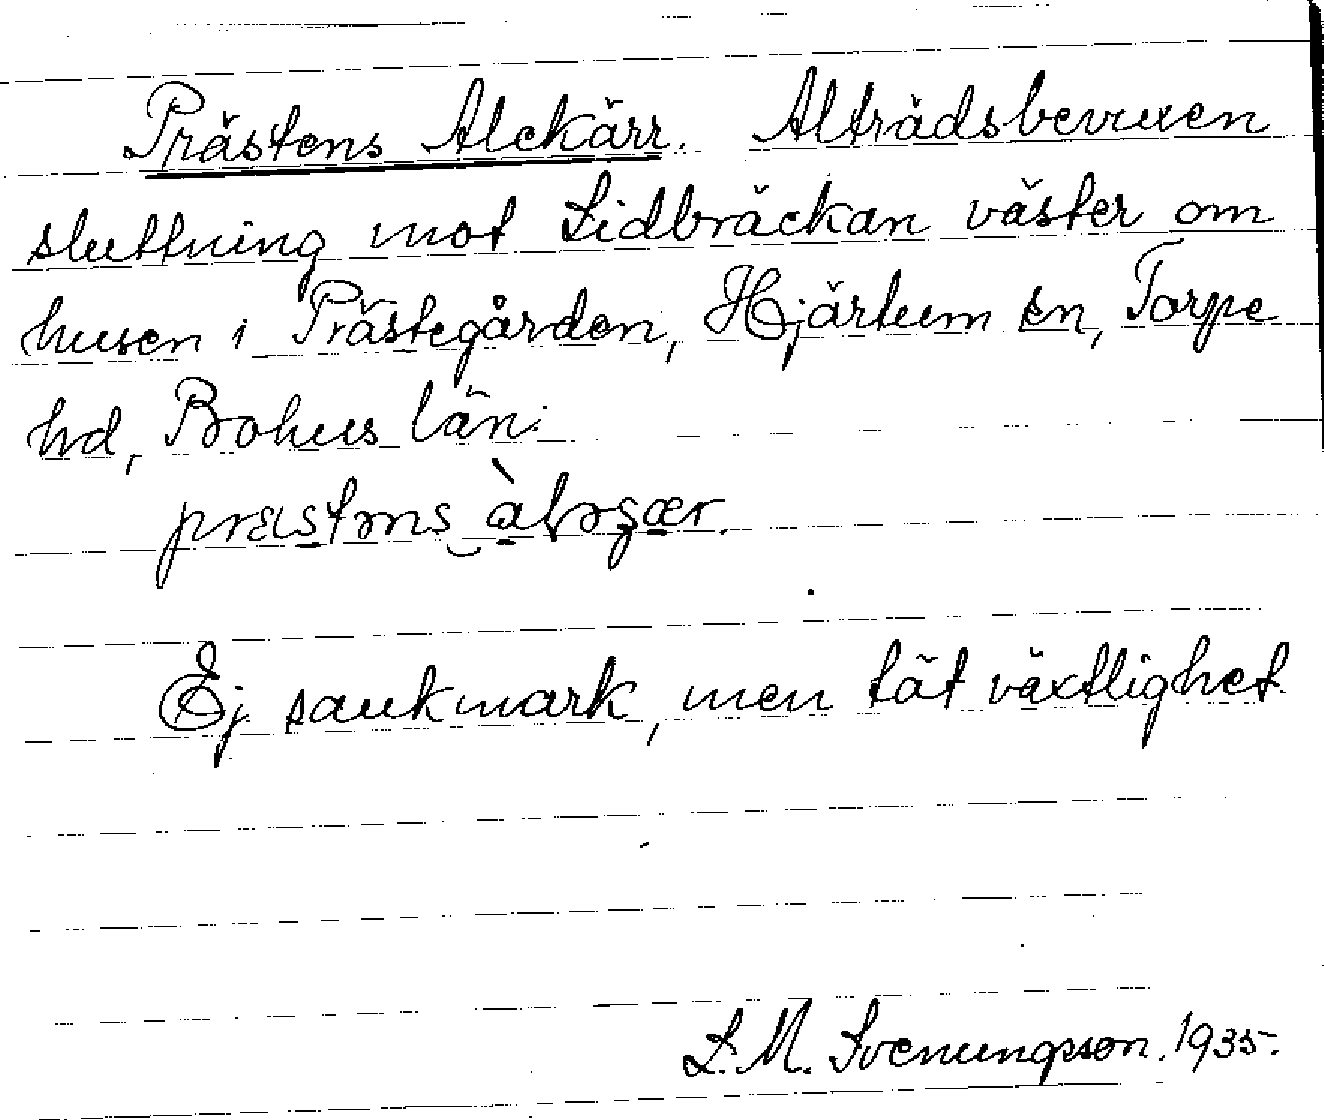 Prästens Alekärr. Alträdsbevuxen
sluttning mot Lidbräckan väster om
husen i Prästegården, Hjärtum sn, Torpe
hd, Bohus län.
Ej sankmark, men tät växtlighet
S. M. Svenungsson. 1935.